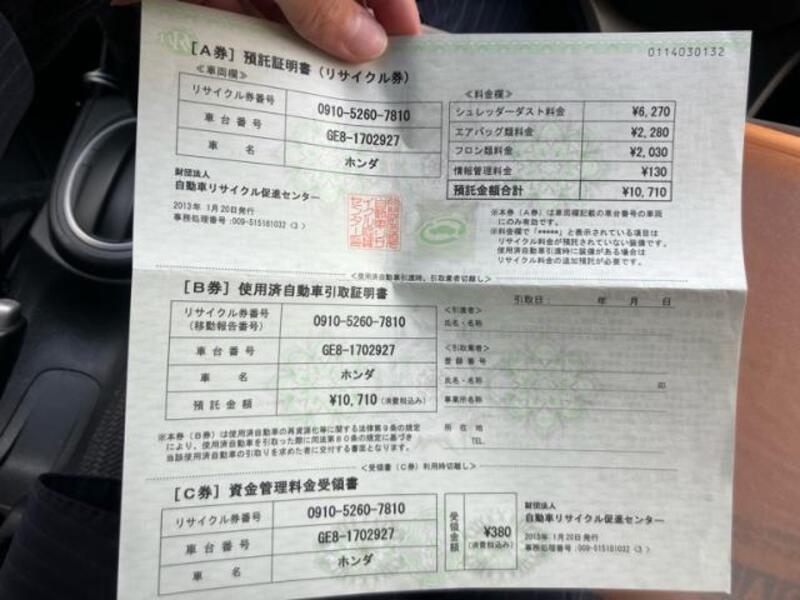 [A券] 預託証明書(リサイクル券)
0114030132
≪車両欄≫
リサイクル券番号 0910-5260-7810
車台番号 GE8-1702927
車名 ホンダ
財団法人
自動車リサイクル促進センター
2013年 1月20日発行
事務処理番号:009-515161032〈3〉
≪料金欄≫
シュレッダーダスト料金 ¥6,270
エアバッグ類料金 ¥2,280
フロン類料金 ¥2,030
情報管理料金 ¥130
預託金額合計 ¥10,710
※本券(A券)は車両欄記載の車台番号の車両
にのみ有効です。
※料金欄で「*****」と表示されている項目は
リサイクル料金が預託されていない装備です。
使用済自動車引渡時に装備がある場合は
リサイクル料金の追加預託が必要です。
<使用済自動車引渡時、引取業者切離し>
[B券] 使用済自動車引取証明書
引取日: 年 月 日
リサイクル券番号
(移動報告番号) 0910-5260-7810
車台番号 GE8-1702927
車名 ホンダ
預託金額 ¥10,710(消費税込み)
<引渡者>
氏名・名称
<引取業者>
登録番号
氏名・名称 印
事業所名称
所在地
TEL.
※本券(B券)は使用済自動車の再資源化等に関する法律第9条の規定
により、使用済自動車を引取った際に同法第80条の規定に基づき
当該使用済自動車の引取りを求めた者に交付する書面となります。
<受領書(C券)利用時切離し>
[C券] 資金管理料金受領書
リサイクル券番号 0910-5260-7810
車台番号 GE8-1702927
車名 ホンダ
受領金額 ¥380
(消費税込み)
財団法人
自動車リサイクル促進センター
2013年 1月20日発行
事務処理番号:009-515161032〈3〉